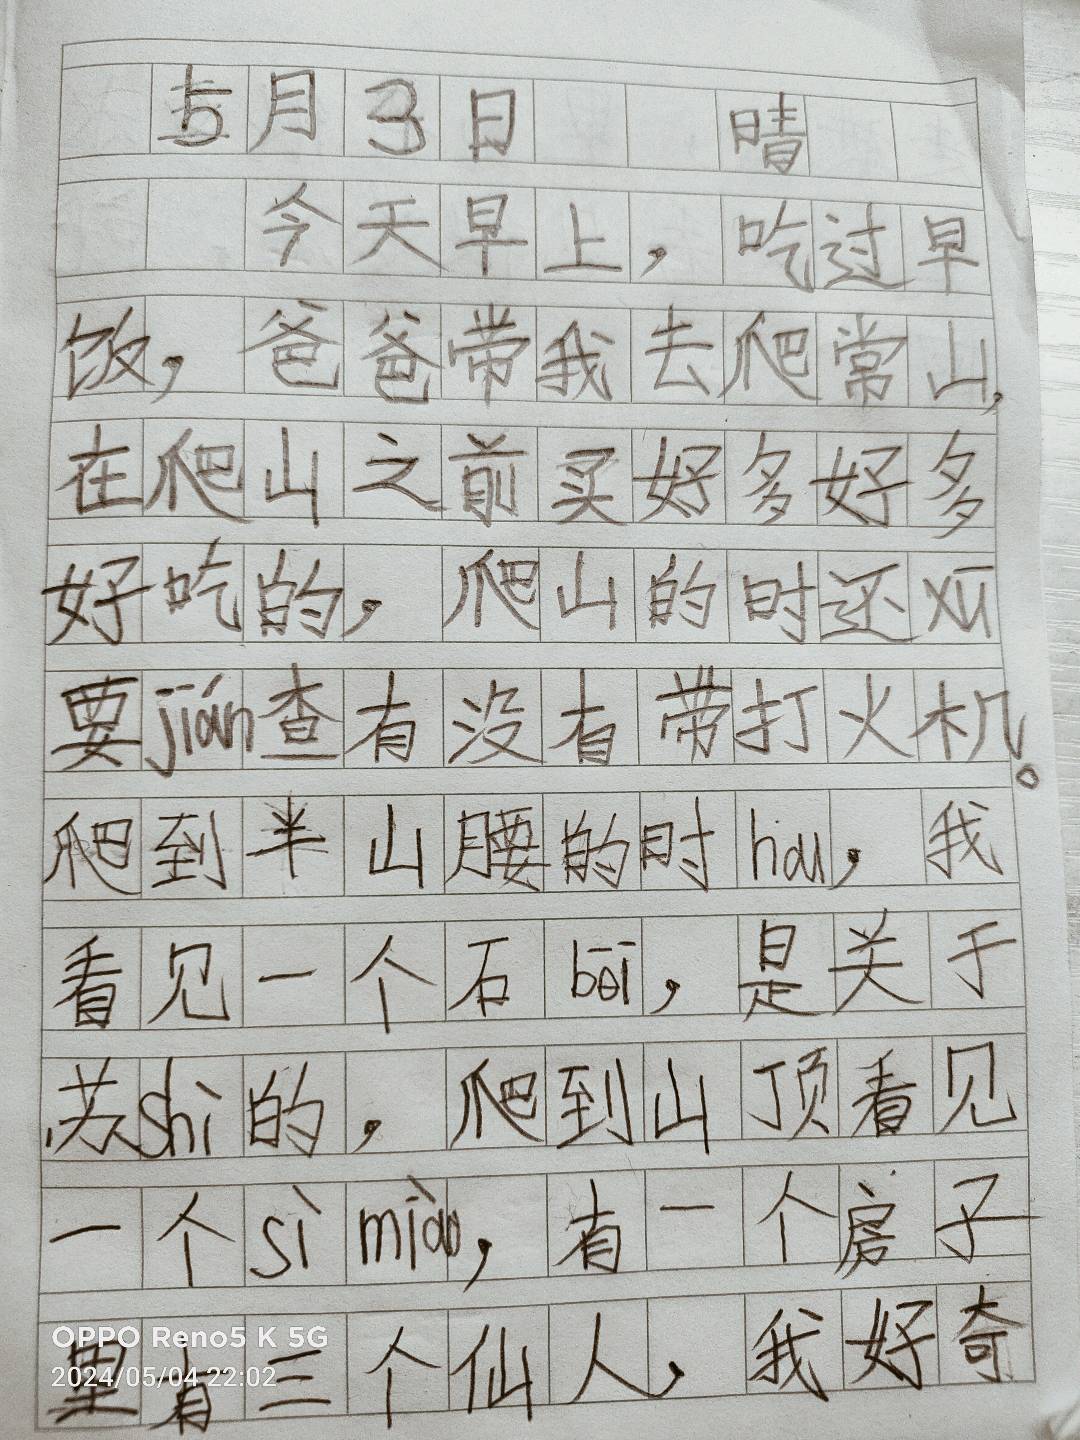 5月3日 晴
今天早上，吃过早
饭，爸爸带我去爬常山，
在爬山之前买好多好多
好吃的，爬山的时还xū
要jián查有没有带打火机。
爬到半山腰的时hou，我
看见一个石bēi，是关于
苏shì的，爬到山顶看见
一个sì miào，有一个房子
里有三个仙人，我好奇
OPPO Reno5 K 5G
2024/05/04 22:02